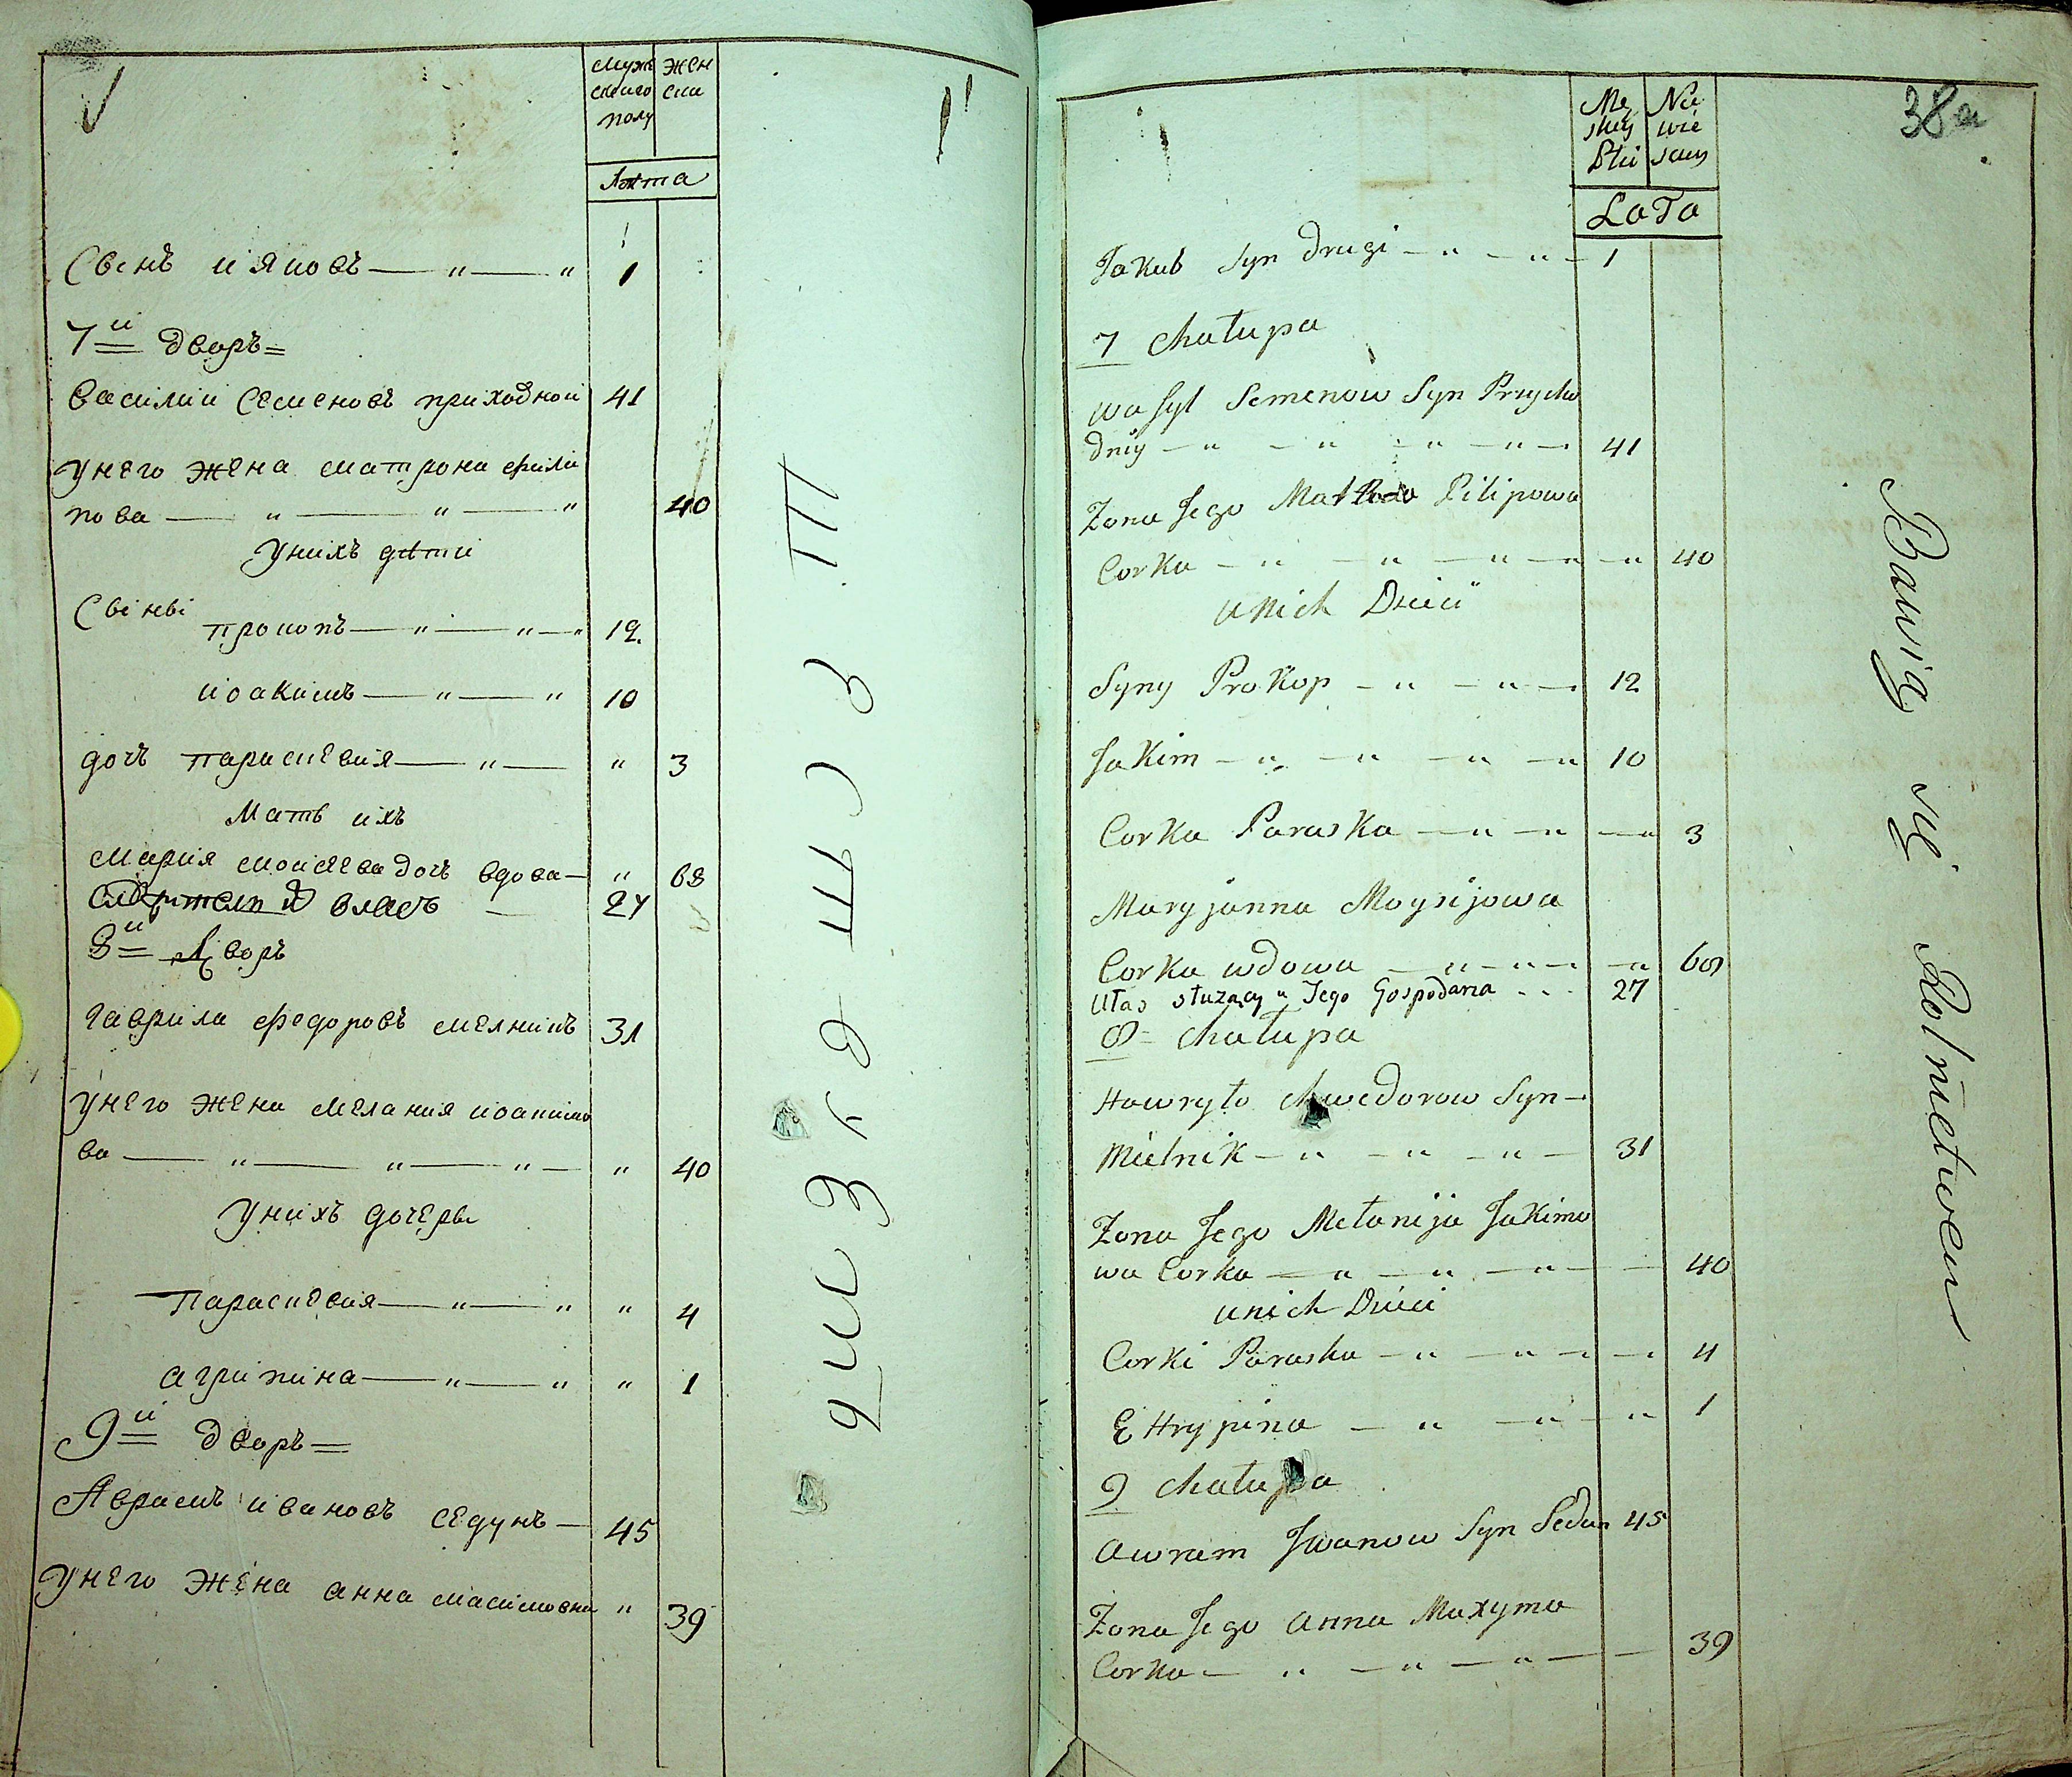 Мужескаго полу | Женски
Лѣта
Свінъ ияковъ — " — " 1
7й дворъ =
Василии Семеновъ приходнои 41
Унего жена матрона фили
пова — " — " — " 40
Унихъ дѣти
Свінві
прокопъ — " — " — " 12
иоакимъ — " — " 10
дочъ параскевия — " — " 3
Мать ихъ
Мария моисеева дочъ вдова — " 68
власъ — 27
8й Дворъ
Гаврила федоровъ мелникъ 31
Унего жена мелания иоакимо
ва — " — " — " — " 40
Унихъ дочеры
Параскевия — " — " " 4
агрипина — " — " " 1
9й дворъ =
Аврамъ ивановъ седунъ — 45
Унего жена анна масимовна " 39
38
Męskiey Płci | Niewiesciey
Lata
Jakub Syn drugi — " — " — 1
7 Chałupa
Wasyl Semenow Syn Przycho
dniy — " — " — " — " — 41
Zona Jego Matrona Pilipowa
Corka — " — " — " — " — " 40
unich Dzieci
Syny Prokop — " — " — 12
Jakim — " — " — " — " 10
Corka Paraska — " — " — " 3
Maryjanna Moysijowa
Corka wdowa — " — " — " 68
Ułas służący u Jego Gospodarza - - - 27
8 = Chałupa
Hawryło Chwedorow Syn —
Mielnik — " — " — " — 31
Zona Jego Mełanija Jakimo
wa Corka — " — " — " — 40
unich Dzieci
Corki Paraska — " — " — " — " 4
E Hrypina — " — " — " 1
9 Chałupa
Awram Jwanow Syn Sedun 45
Zona Jego Anna Maxyma
Corka — " — " — " — 39
Bawią się Rolnictwem